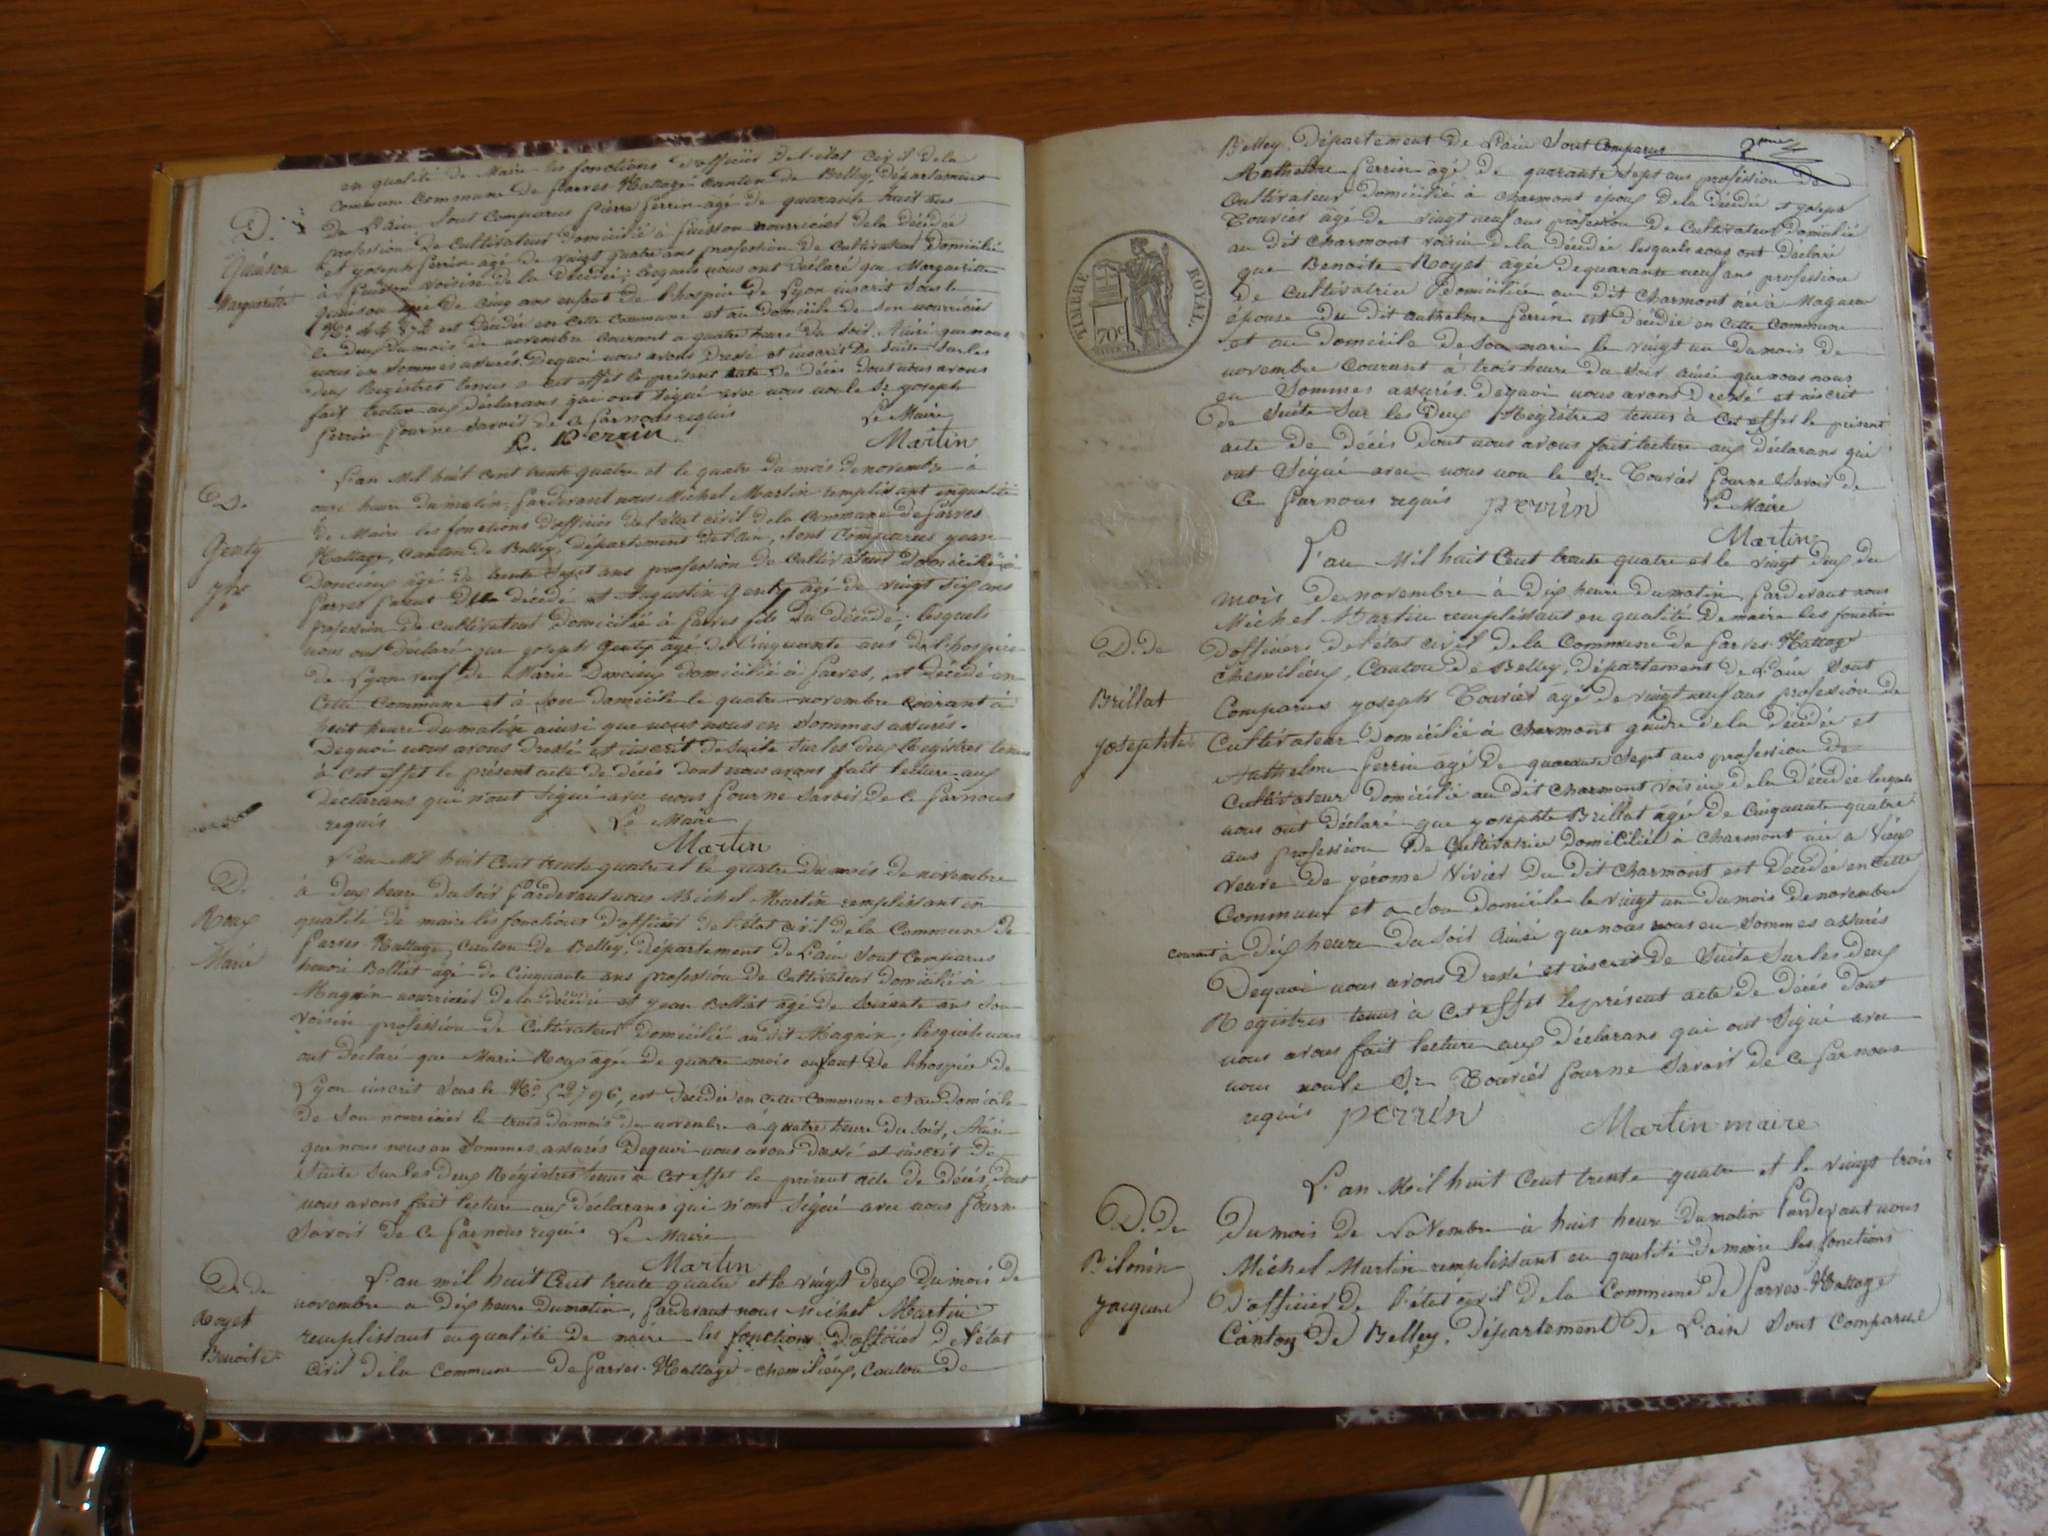 en qualité de Maire les fonctions d'officier de l'état civil de la
commune Commune de Parves-Nattage Canton de Belley, Département
De L'ain Sont Comparus Pierre Perrin agé de quarante huit ans
D.
profession de Cultivateur domicilié à nourricier de la décédée
et joseph Perrin agé de vingt quatre ans profession de Cultivateur Domicilié
Guinson
Marguerite
à voisin de la Décédée; lesquels nous ont déclaré que Marguerite
agée de Cinq ans enfant de l'hospice de Lyon inscrit Sous le
No. est décédée en cette Commune et au domicile de son nourricier
le deux du mois de novembre Courant à quatre heure du soir, Ainsi que nous
nous en sommes assurés. Dequoi nous avons Dressé et inscrit De Suite Sur les
deux Registres tenus à cet effet le présent acte de décès dont nous avons
fait lecture aux déclarans qui ont signé avec nous non le Sr. joseph
Perrin pour ne savoir de ce par nous requis
Le Maire
P. Perrin
Martin
L'an Mil huit Cent trente quatre et le quatre du mois de novembre à
D.
Genty
jph
onze heure du matin, Pardevant nous Michel Martin remplissant en qualité
de Maire les fonctions d'officier de l'état civil de la Commune de Parves
Nattage, Canton de Belley, département de l'ain, Sont Comparus jean
Dancieux agé de trente sept ans profession de Cultivateur domicilié à
Parves parent Du décédé et Augustin Genty agé de vingt Six ans
profession de Cultivateur Domicilié à Parves fils Du décédé; lesquels
nous ont déclaré que joseph Genty agé de Cinquante ans de l'hospice
de Lyon veuf de Marie Dancieux domicilié à Parves, est décédé en
Cette Commune et à son domicile le quatre novembre Courant à
huit heure du matin ainsi que nous nous en sommes assurés.
Dequoi nous avons Dressé et inscrit de Suite Sur les deux Registres tenus
à Cet effet le présent acte de décès dont nous avons fait lecture aux
Déclarans qui n'ont signé avec nous Pour ne Savoir de Ce Par nous
requis
Le Maire
Martin
L'an Mil huit Cent trente quatre et le quatre du mois de novembre
D.
Roux
Marie
à deux heure du Soir Pardevant nous Michel Martin remplissant en
qualité de maire les fonctions d'officier de l'état civil de la Commune de
Parves-Nattage, Canton de Belley, département de L'ain Sont Comparus
henri Bolliet agé de Cinquante ans profession de Cultivateur domicilié à
Magnin nourricier de la décédée et jean Bolliet agé de Soixante ans Son
voisin profession de Cultivateur domicilié au dit Magnin, lesquels nous
ont déclaré que Marie Roux agée de quatre mois enfant de l'hospice de
Lyon inscrit Sous le No. 52796, est décédée en cette Commune et au Domicile
de Son nourricier le trois du mois de novembre à quatre heure du soir, Ainsi
que nous nous en Sommes assurés Dequoi nous avons dressé et inscrit De
Suite Sur les Deux Régistres tenus à Cet effet le présent acte de décès, dont
nous avons fait lecture aux déclarans qui n'ont signé avec nous Pour ne
Savoir de Ce Par nous requis
Le Maire
Martin
D. de
Royet
Benoite
L'an mil huit Cent trente quatre et le vingt deux du mois de
novembre à Dix heure du matin, Pardevant nous Michel Martin
remplissant en qualité de maire les fonctions d'officier de l'état
Civil de la Commune de Parves-Nattage-Chemilieux, Canton de
Belley, Département de L'ain Sont Comparus
Anthelme Perrin agé de quarante Sept ans profession de
Cultivateur domicilié à Charmont époux de la décédée et joseph
Touvier agé de vingt neuf ans profession de Cultivateur domicilié
au dit Charmont voisin de la décédée lesquels nous ont déclaré
que Benoite Royet agée de quarante neuf ans profession
de Cultivatrice Domiciliée au dit Charmont née à
épouse Du dit anthelme Perrin est décédée en Cette Commune
et au domicile de Son mari le vingt un du mois de
novembre Courant à trois heure du soir Ainsi que nous nous
en Sommes assurés. Dequoi nous avons Dressé et inscrit
de Suite Sur les Deux Régistres tenus à Cet effet le présent
acte de décès dont nous avons fait lecture aux déclarans qui
ont Signé avec nous non le Sr. Touvier pour ne Savoir de
Ce Par nous requis
Perrin
Le Maire
Martin
TIMBRE ROYAL.
70c
L'an Mil huit Cent trente quatre et le vingt deux du
mois de novembre à Dix heure du matin, Pardevant nous
Michel Martin remplissant en qualité De maire les fonction
D. de
Brillat
josephte
d'officiers de l'état civil de la Commune de Parves-Nattage
Chemilieux, Canton de Belley, département de L'ain Sont
Comparus joseph Touvier agé de vingt neuf ans profession de
Cultivateur Domicilié à Charmont gendre de la décédée et
Anthelme Perrin agé de quarante Sept ans profession de
Cultivateur domicilié au dit Charmont voisin de la décédée lesquels
nous ont déclaré que josephte Brillat agée de Cinquante quatre
ans profession de Cultivatrice Domiciliée à Charmont née à
veuve de jérome Vivier Du dit Charmont est décédée en Cette
Commune et à Son Domicile le vingt un du mois de novembre
courant à dix heure du Soir Ainsi que nous nous en Sommes assurés
Dequoi nous avons Dressé et inscrit de Suite Sur les Deux
Registres tenus à Cet effet le présent acte de décès dont
nous avons fait lecture aux déclarans qui ont Signé avec
nous non le Sr Touvier pour ne Savoir de Ce Par nous
requis
Perrin
Martin maire
L'an Mil huit Cent trente quatre et le vingt trois
D. de
Jacquine
du mois de Novembre à huit heure du matin Pardevant nous
Michel Martin remplissant en qualité de maire les fonctions
d'officier de l'état civil de la Commune de Parves-Nattage
Canton de Belley, Département de L'ain Sont Comparus